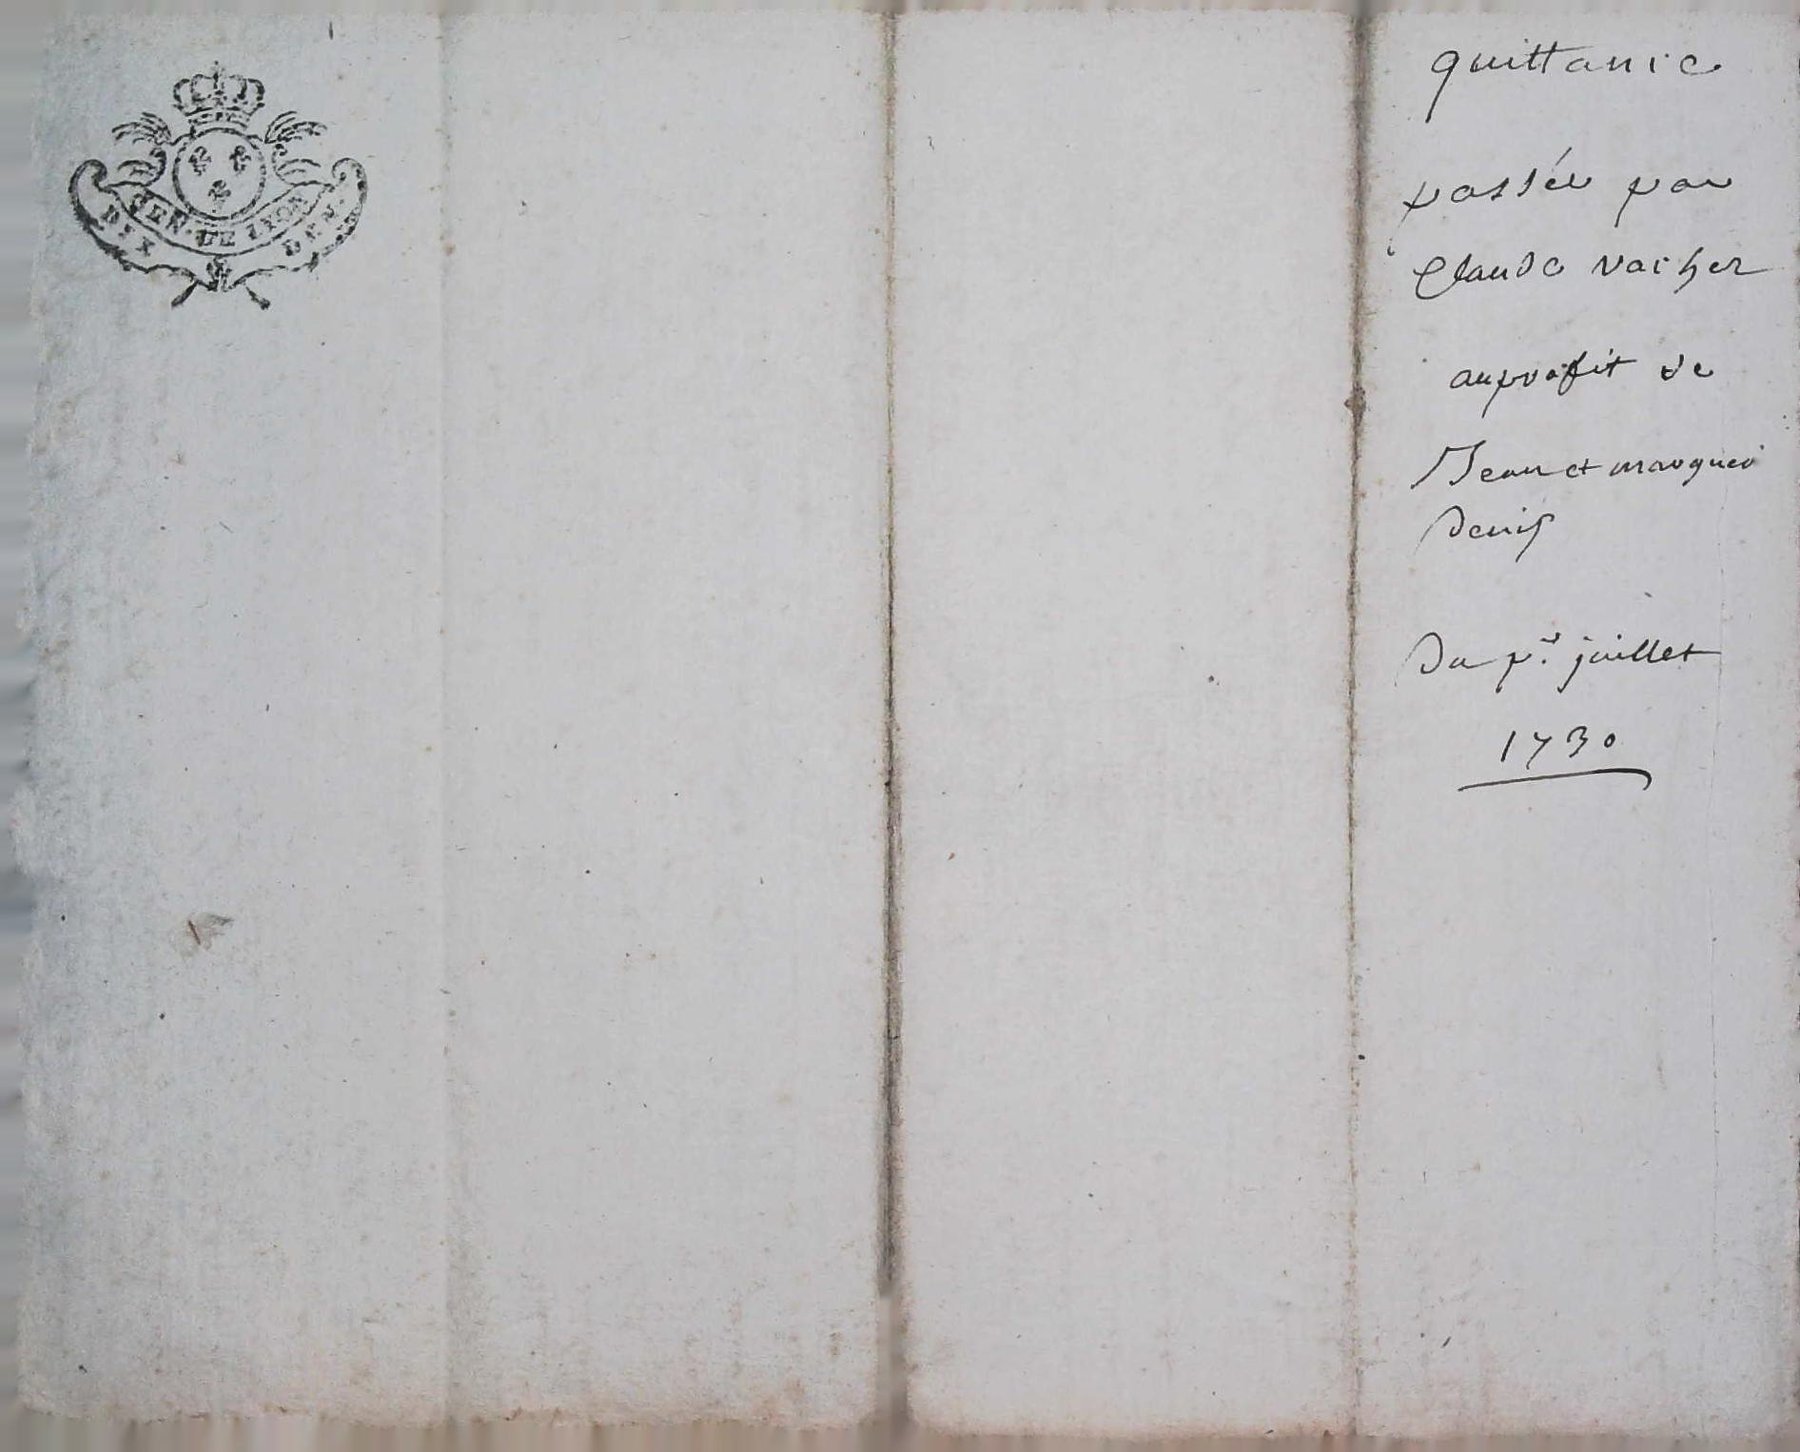 GEN. DE LYON
DIX DEN.
quittance
passée par
Claude vacher
au profit de
Jean et marguer
denis
Du pr. juillet
1730